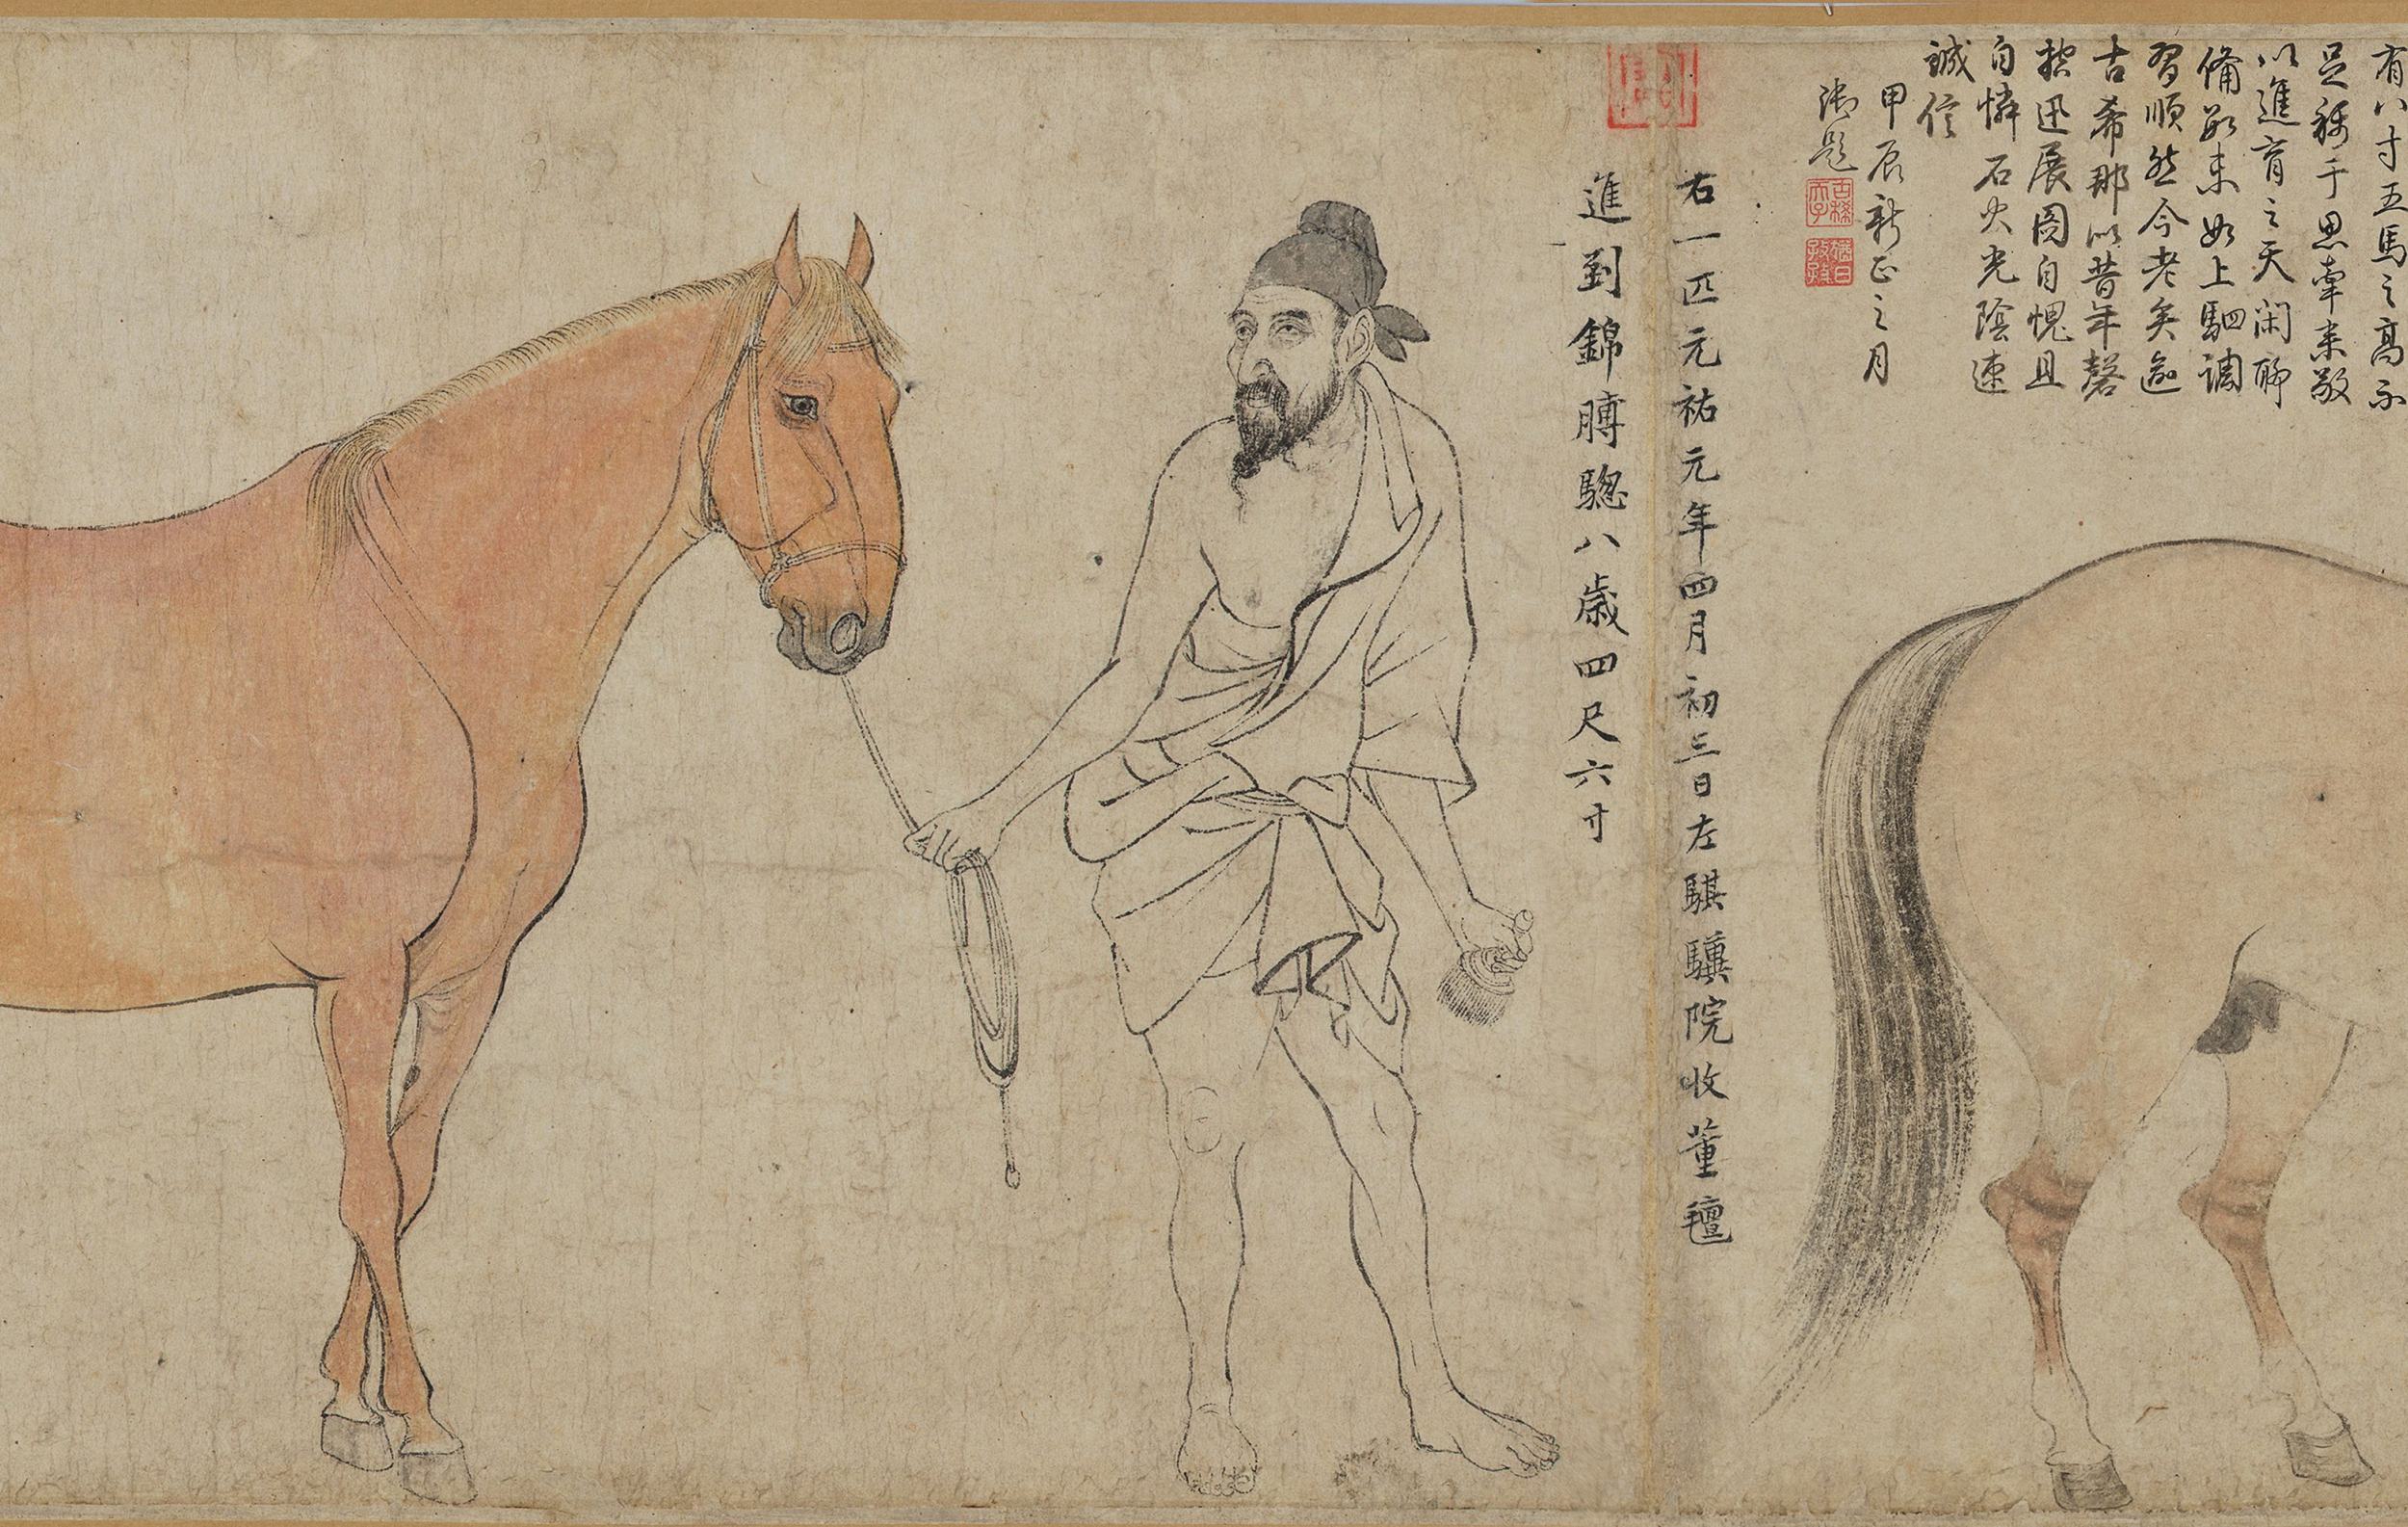 有八寸五馬之高不
足稱于思牽来敬
以進育之天閑聊
備數来如上駟調
習順然今老矣逾
古希那以昔年磬
控迅展圖自愧且
自憐石火光陰速
誠信
甲辰新正之月
御題
古稀天子
猶日孜孜
右一匹元祐元年四月初三日左騏驥院收董氊
進到錦膊驄八歲四尺六寸